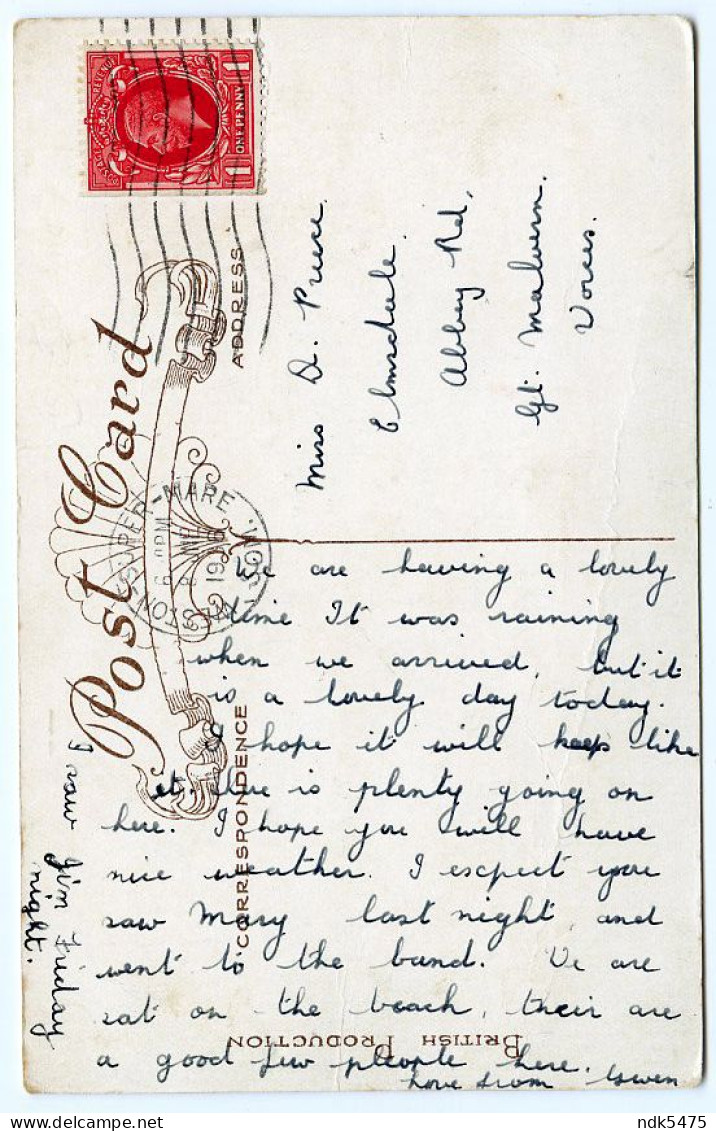 POSTAGE REVENUE
1 ONE PENNY 1
Post Card
ADDRESS
CORRESPONDENCE
BRITISH PRODUCTION
6 PM
JN
8
Miss D. Preece
Elmsdale.
Abbey Rd,
Gt. Malvern.
Worcs.
We are having a lovely
time It was raining
when we arrived, but it
is a lovely day today.
I hope it will keep like
it. there is plenty going on
here. I hope you will have
nice weather. I escpect you
saw Mary last night, and
went to the band. We are
sat on the beach, their are
a good few pleople here.
love from Gwen
I saw Jim Friday
night.
ndk5475